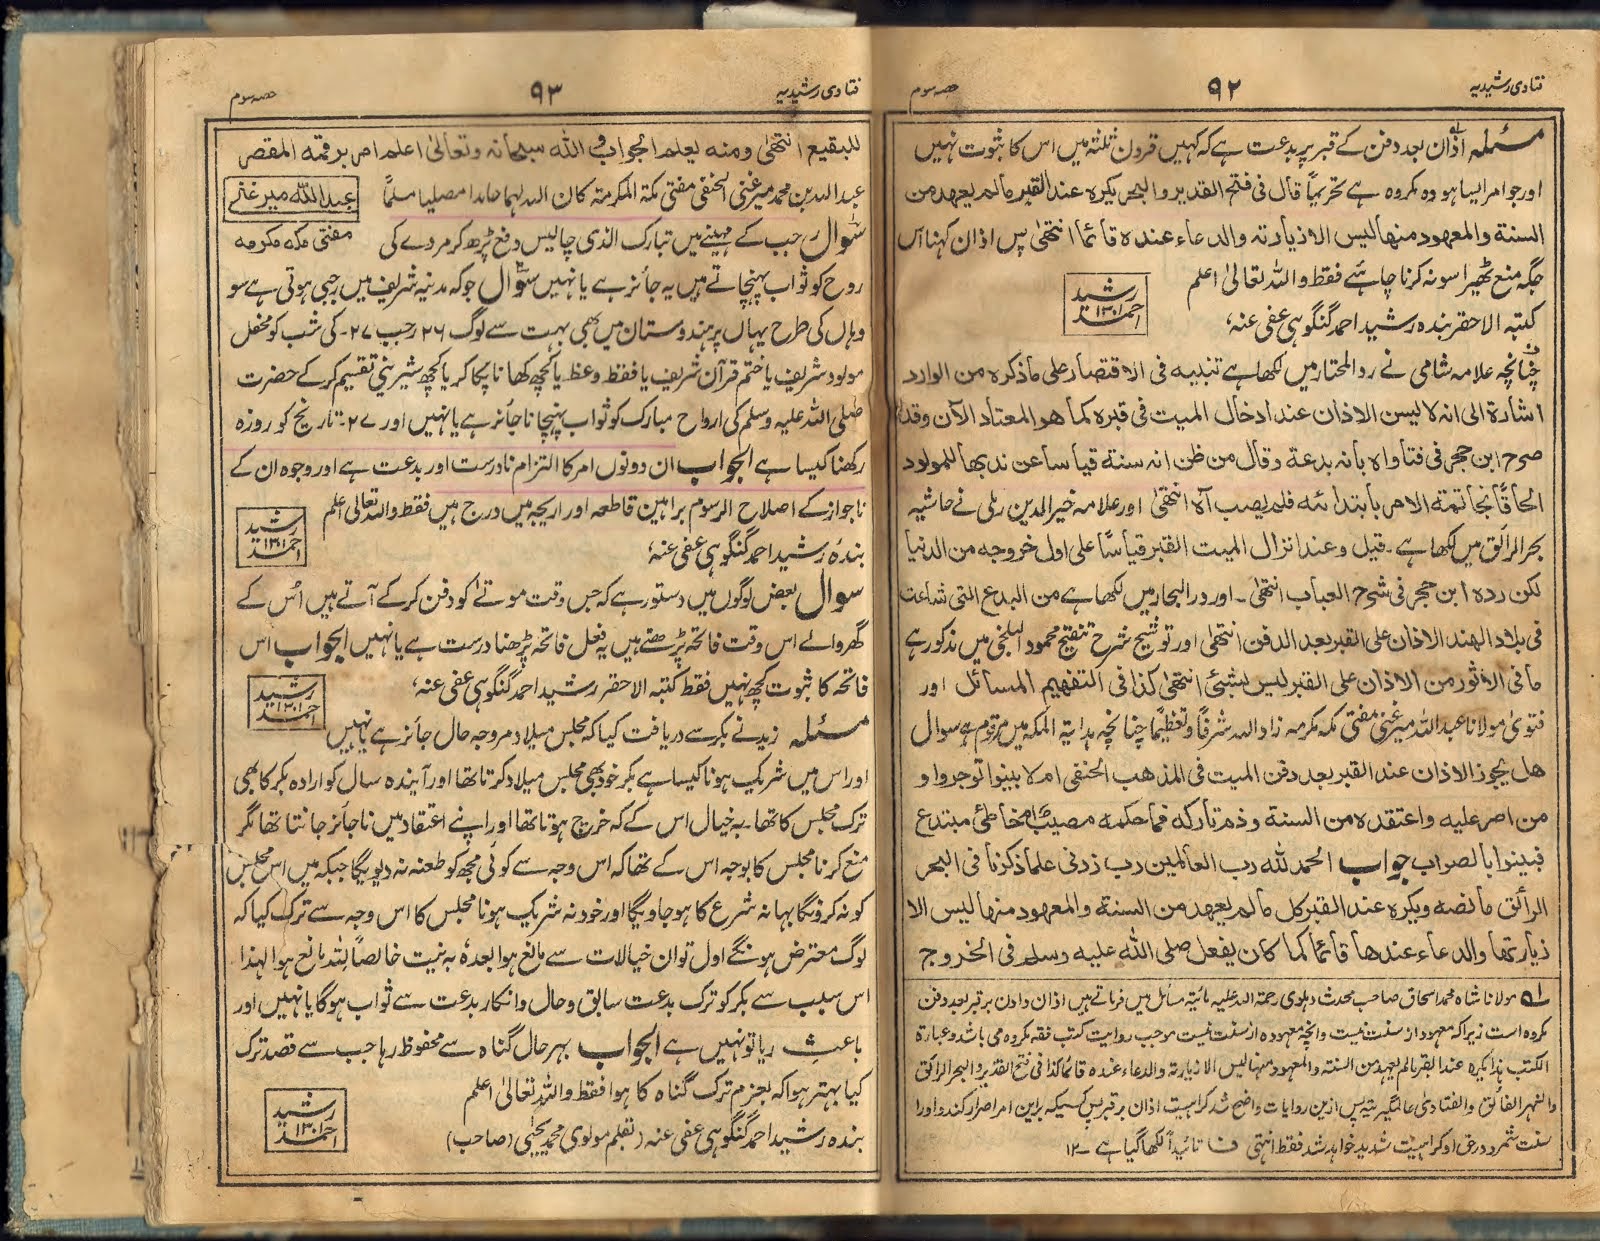 فتاوی رشیدیہ
۹۲
حصہ سوم
مسئلہ اذان بعد دفن کے قبر پر بدعت ہے کہ کہیں قرون ثلٰثہ میں اس کا ثبوت نہیں
اور جو امر ایسا ہو وہ مکروہ ہے تحریماً قال فی فتح القدیر و البحر یکرہ عند القبر ما لم یعھد من
السنة والمعھود منھا لیس الا زیارتہ والدعاء عندہ قائماً انتھیٰ پس اذان کہنا اس
جگہ منع ٹھیرا سو نہ کرنا چاہئے فقط واللہ تعالیٰ اعلم
کتبہ الاحقر بندہ رشید احمد گنگوہی عفی عنہ،
رشید احمد ۱۳۰۱
چنانچہ علامہ شامی نے رد المحتار میں لکھا ہے تنبیہ فی الاقتصار علی ما ذکرہ من الوارد
اشارة الی انہ لا یسن الاذان عند ادخال المیت فی قبرہ کما ھو المعتاد الآن وقد
صرح ابن حجر فی فتاواہ بانہ بدعة وقال من ظن انہ سنة قیاسا عن ندبھا للمولود
الحاقًا لخاتمة الامر بابتدائہ فلم یصب آہ انتھیٰ اور علامہ خیر الدین رملی نے حاشیہ
بحر الرائق میں لکھا ہے۔ قیل وعند انزال المیت القبر قیاسًا علی اول خروجہ من الدنیا
لکن ردہ ابن حجر فی شرح العباب انتھیٰ۔ اور در البحار میں لکھا ہے من البدع التی شاعت
فی بلاد الھند الاذان علی القبر بعد الدفن انتھیٰ اور توشیح شرح تنقیح محمود البلخی میں مذکور ہے
ما فی الاثور من الاذان علی القبر لیس بشیٔ انتھیٰ کذا فی التفھیم المسائل اور
فتویٰ مولانا عبد اللہ میرغنی مفتی مکہ مکرمہ زاد اللہ شرفًا و تعظیمًا چنانچہ ہدایۃ المکہ میں مرقوم ہے سوال
ھل یجوز الاذان عند القبر بعد دفن المیت فی المذھب الحنفی ام لا بینوا توجروا و
من اصر علیہ واعتقدہ من السنة وذم تارکہ فما حکمہ مصیب ام مخاطئ مبتدع
فبینوا بالصواب جواب الحمد للہ رب العالمین رب زدنی علما ذکرنا فی البحر
الرائق ما نصہ ویکرہ عند القبر کل ما لم یعھد من السنة والمعھود منھا لیس الا
زیارتھا والدعاء عندھا قائما کما کان یفعل صلی اللہ علیہ وسلم فی الخروج
لہ مولانا شاہ محمد اسحاق صاحب محدث دہلوی رحمۃ اللہ علیہ مائیہ مسائل میں فرماتے ہیں اذان دادن بر قبر بعد دفن
مکروہ است زیرا کہ معہود از سنت نیست و انچہ معہودہ از سنت نیست موجب روایت کتب فقہ مکروہ می باشد و عبارۃ
الکتب ہذا یکرہ عند القبر مالم یعہد من السنۃ والمعہود منہا لیس الا زیارتہ والدعاء عندہ قائما کذا فی فتح القدیر والبحر الرائق
والنہر الفائق والفتاویٰ عالمگیریہ پس ازین روایات واضح شد کراہیت اذان بر قبر پس کسیکہ براین امر اصرار کند و او را
سنت شمرد درحق او کراہیت شدید خواہد شد فقط انتہی تائیداً لکھا گیا ہے ۔۱۲
فتاوی رشیدیہ
۹۳
حصہ سوم
للبقیع انتھیٰ ومنہ یعلم الجواب واللہ سبحانہ وتعالیٰ اعلم امر برقمہ المقصر
عبد اللہ بن محمد میرغنی الحنفی مفتی مکۃ المکرمۃ کان اللہ لہما حامدا مصلیا مسلماً
عبد اللہ میرغنی
مفتی مکہ مکرمہ
سوال رجب کے مہینے میں تبارک الذی چالیس دفع پڑھ کر مردے کی
روح کو ثواب پہنچاتے ہیں یہ جائز ہے یا نہیں سوال جو کہ مدینہ شریف میں رجبی ہوتی ہے سو
وہاں کی طرح یہاں پر ہندوستان میں بھی بہت سے لوگ ۲۶ رجب ۲۷۔ کی شب کو محفل
مولود شریف یا ختم قرآن شریف یا فقط وعظ یا کچھ کھانا پکا کر یا کچھ شیرینی تقسیم کر کے حضرت
صلی اللہ علیہ وسلم کی ارواح مبارک کو ثواب پہنچانا جائز ہے یا نہیں اور ۲۷۔ تاریخ کو روزہ
رکھنا کیسا ہے الجواب ان دونوں امر کا التزام نادرست اور بدعت ہے اور وجوہ ان کے
ناجواز کے اصلاح الرسوم براہین قاطعہ اور اریجہ میں درج ہیں فقط واللہ تعالیٰ اعلم
بندہ رشید احمد گنگوہی عفی عنہ،
رشید احمد ۱۳۰۱
سوال بعض لوگوں میں دستور ہے کہ جس وقت موتے کو دفن کر کے آتے ہیں اُس کے
گھر والے اس وقت فاتحہ پڑھتے ہیں یہ فعل فاتحہ پڑھنا درست ہے یا نہیں الجواب اس
فاتحہ کا ثبوت کچھ نہیں فقط کتبہ الاحقر رشید احمد گنگوہی عفی عنہ،
رشید احمد ۱۳۰۱
مسئلہ زید نے بکر سے دریافت کیا کہ مجلس میلاد مروجہ حال جائز ہے یا نہیں
اور اس میں شریک ہونا کیسا ہے بکر خود بھی مجلس میلاد کرتا تھا اور آیندہ سال کو ارادہ بکر کا بھی
ترک مجلس کا تھا۔ بہ خیال اس کے کہ خرچ ہوتا تھا اور اپنے اعتقاد میں ناجائز جانتا تھا مگر
منع کرنا مجلس کا بوجہ اس کے تھا کہ اس وجہ سے کوئی مجھ کو طعنہ نہ دیویگا جبکہ میں اس مجلس
کو نہ کرونگا بہانہ شرع کا ہو جاویگا اور خود نہ شریک ہونا مجلس کا اس وجہ سے ترک کیا کہ
لوگ معترض ہونگے اول تو ان خیالات سے مانع ہوا بعدہٗ بہ نیت خالصاً للہ مانع ہوا لہذا
اس سبب سے بکر کو ترک بدعت سابق و حال و انکار بدعت سے ثواب ہوگا یا نہیں اور
باعث ریا تو نہیں ہے الجواب بہر حال گناہ سے محفوظ رہا جب سے قصد ترک
کیا بہتر ہوا کہ بعزم ترک گناہ کا ہوا فقط واللہ تعالیٰ اعلم
بندہ رشید احمد گنگوہی عفی عنہ (بقلم مولوی محمد یحییٰ صاحب)
رشید احمد ۱۳۰۱